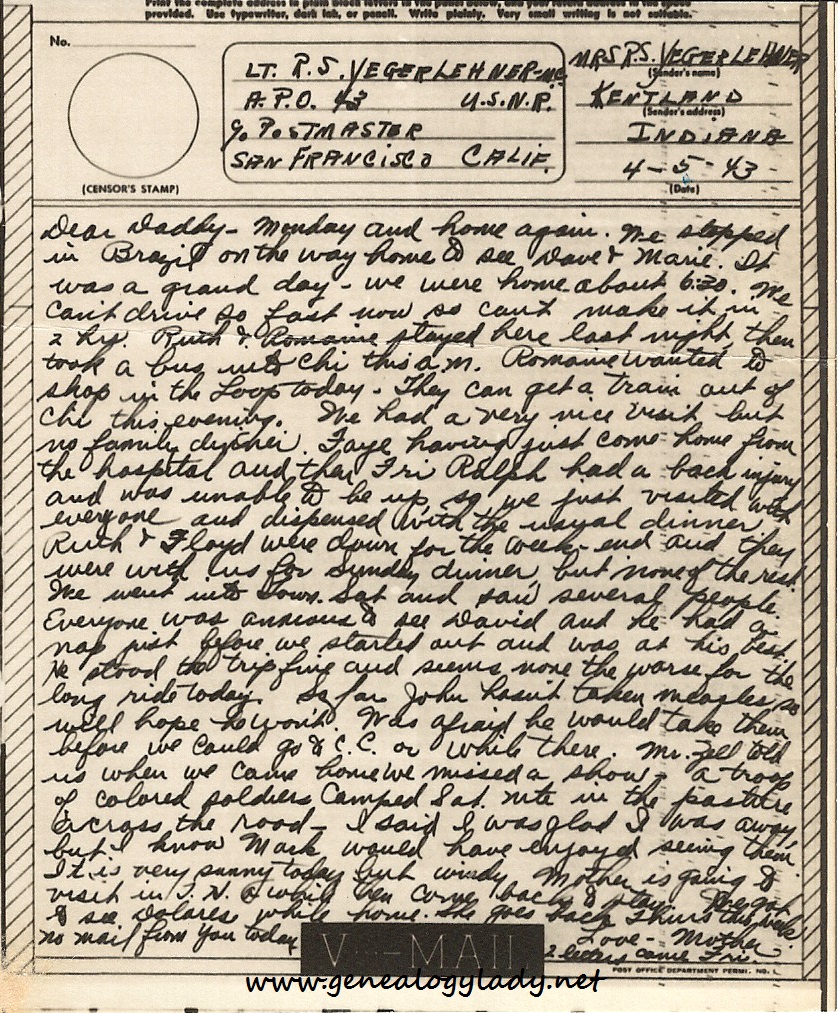 Print the complete address in plain block letters in the panel below, and your return address in the space
provided. Use typewriter, dark ink, or pencil. Write plainly. Very small writing is not suitable.
No.
(CENSOR'S STAMP)
LT. R.S. VEGERLEHNER-MC
A.P.O. 43 U.S.N.R.
% POSTMASTER
SAN FRANCISCO CALIF.
MRS R.S. VEGERLEHNER
(Sender's name)
KENTLAND
(Sender's address)
INDIANA
4-5-43
(Date)
Dear Daddy- Monday and home again. We stopped
in Brazil on the way home to see Dave & Marie. It
was a grand day - we were home about 6:30. We
can't drive so fast now so can't make it in
2 hrs. Ruth & Romaine stayed here last night, then
took a bus into Chi this a.m. Romaine wanted to
shop in the Loop today. They can get a train out of
Chi this evening. We had a very nice visit but
no family dinner. Faye having just come home from
the hospital and then Fri Ralph had a back injury
and was unable to be up, so we just visited with
everyone and dispensed with the usual dinner.
Ruth & Floyd were down for the week-end and they
were with us for Sunday dinner, but none of the rest.
We went into town Sat and saw several people.
Everyone was anxious to see David and he had a
nap just before we started out and was at his best.
He stood the trip fine and seems none the worse for the
long ride today. So far John hasn't taken measles, so
will hope he won't. Was afraid he would take them
before we could go to C.C. or while there. Mr. Zell told
us when we came home we missed a show - a troop
of colored soldiers camped Sat. nite in the pasture
across the road - I said I was glad I was away,
but I know Mark would have enjoyed seeing them.
It is very sunny today but windy. Mother is going to
visit in T.H. a while then come back to stay. We got
to see Dolores while home. She goes back Thurs this week.
no mail from you today Love - Mother.
2 letters came Fri.
V---MAIL
POST OFFICE DEPARTMENT PERMI. NO. 1.
www.genealogylady.net